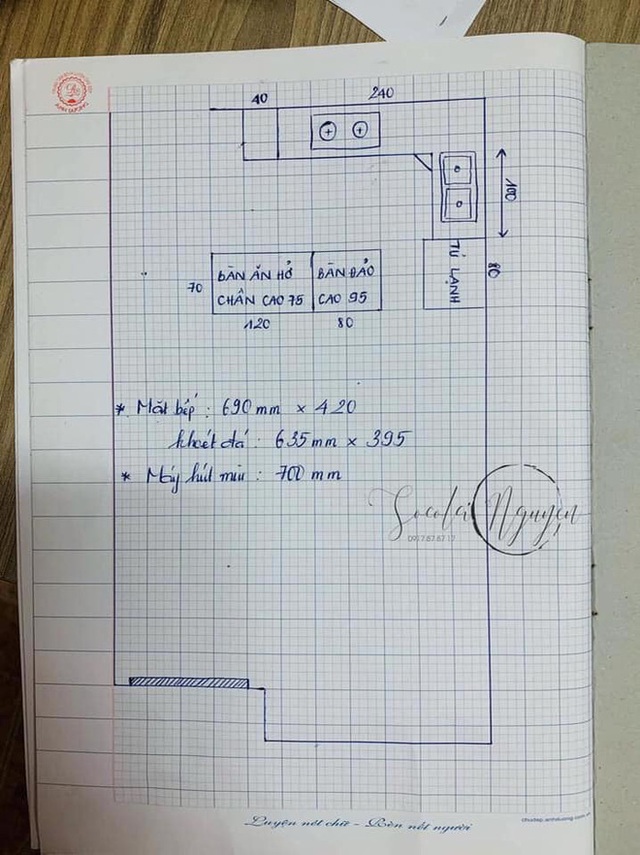 ÁNH DƯƠNG
40
240
100
BÀN ĂN HỞ
CHÂN CAO 75
BÀN ĐẢO
CAO 95
TỦ LẠNH
80
70
120
80
* Mặt bếp : 690 mm × 420
khoét đá : 635 mm × 395
* Máy hút mùi : 700 mm
Socola Nguyen
Luyện nét chữ - Rèn nết người